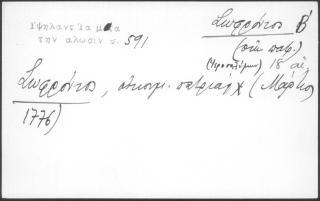 Υψηλαντ Ια μετα
την αλωσιν σ. 591
Σωφρόνιος Β´
(οἰκ. πατρ.)
(Ἱεροσολύμων) 18 αἰ.
Σωφρόνιος, οἰκουμ. πατριάρχ (Μάρτιος
1776)